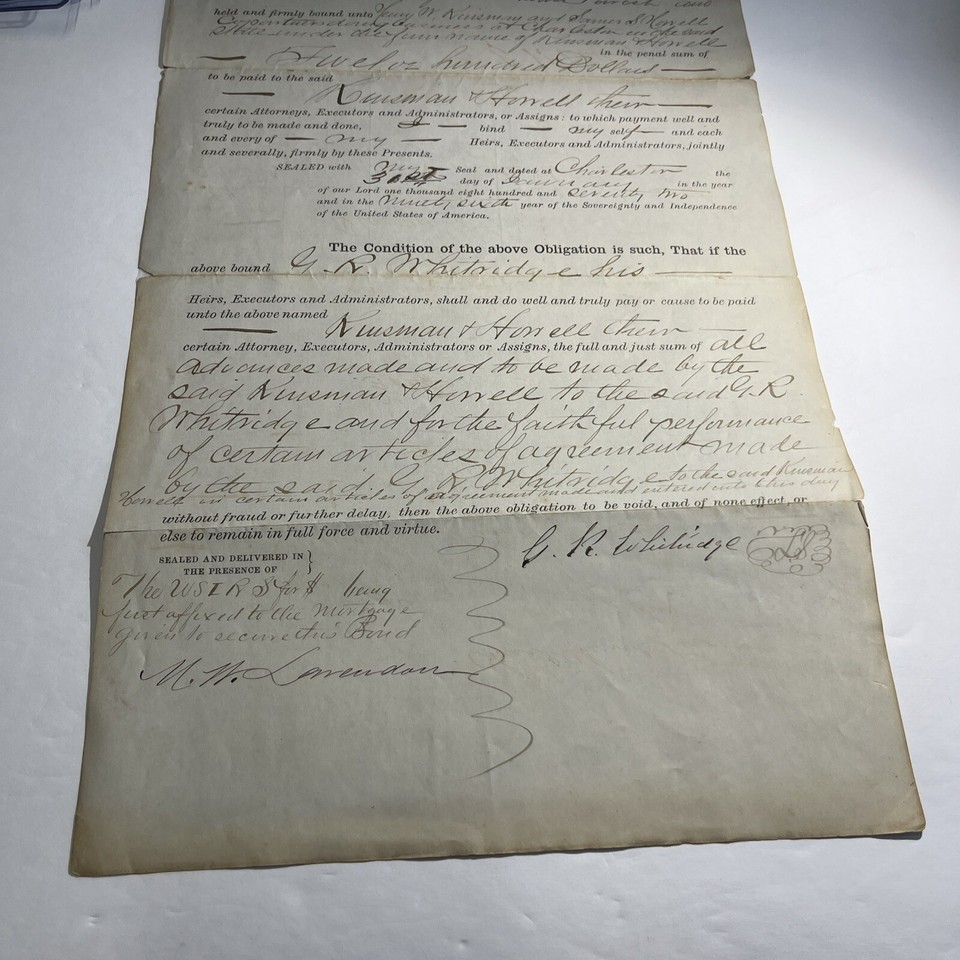 held and firmly bound unto Henry W. Kinsman and James S Howell
Copartners doing business at Charleston in the said
State under the firm name of Kinsman & Howell
in the penal sum of
Twelve hundred Dollars
to be paid to the said
Kinsman & Howell their
certain Attorneys, Executors and Administrators, or Assigns: to which payment well and
truly to be made and done, I bind my self and each
and every of my Heirs, Executors and Administrators, jointly
and severally, firmly by these Presents.
SEALED with my Seal and dated at Charleston the
31st day of January in the year
of our Lord one thousand eight hundred and seventy two
and in the Ninety sixth year of the Sovereignty and Independence
of the United States of America.
The Condition of the above Obligation is such, That if the
above bound G. R. Whitridge his
Heirs, Executors and Administrators, shall and do well and truly pay or cause to be paid
unto the above named
Kinsman & Howell their
certain Attorney, Executors, Administrators or Assigns, the full and just sum of all
advances made and to be made by the
said Kinsman & Howell to the said G. R.
Whitridge and for the faithful performance
of certain articles of agreement made
by the said G. R. Whitridge to the said Kinsman
Howell in certain articles of agreement made and entered into this day
without fraud or further delay, then the above obligation to be void, and of none effect, or
else to remain in full force and virtue.
SEALED AND DELIVERED IN
THE PRESENCE OF
G. R. Whitridge
The USIRS for $ being
first affixed to the Mortgage
given to secure this Bond
M. W.